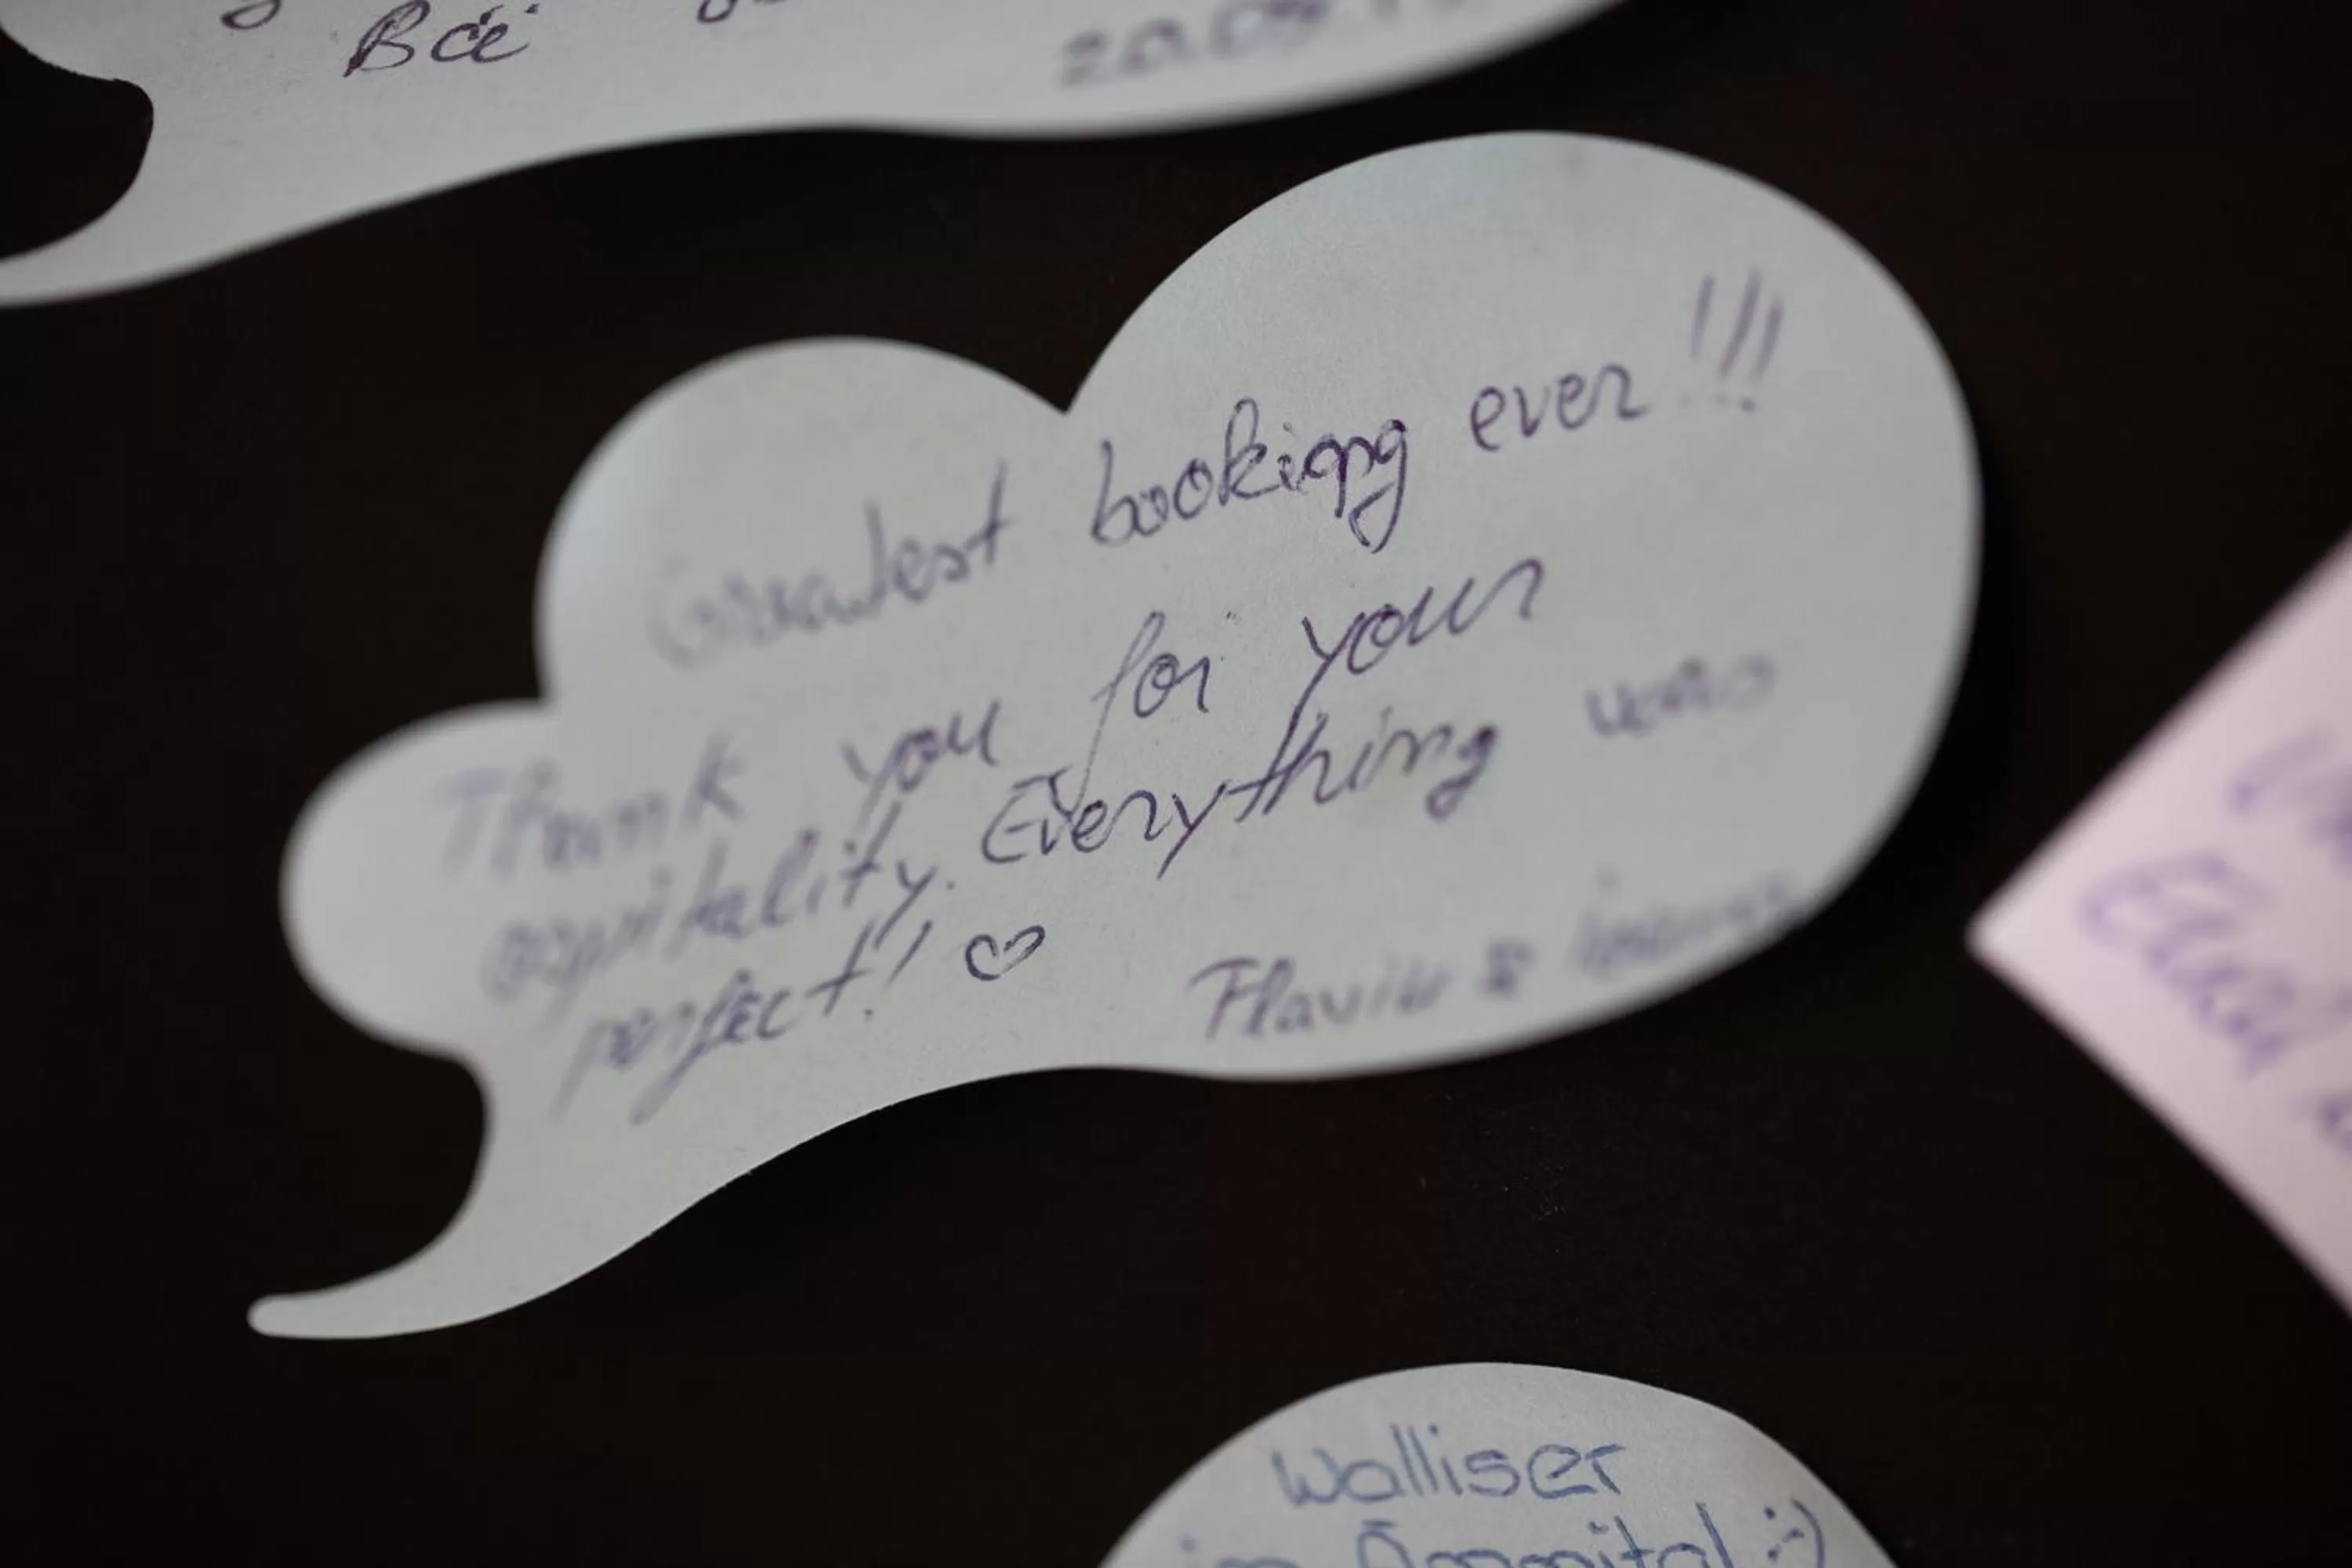 Всё
20.09.
Greatest booking ever!!!
Thank you for your
ospitality. Everything was
perfect!! ♡
Flaviu &
Walliser
im Ämmital :)